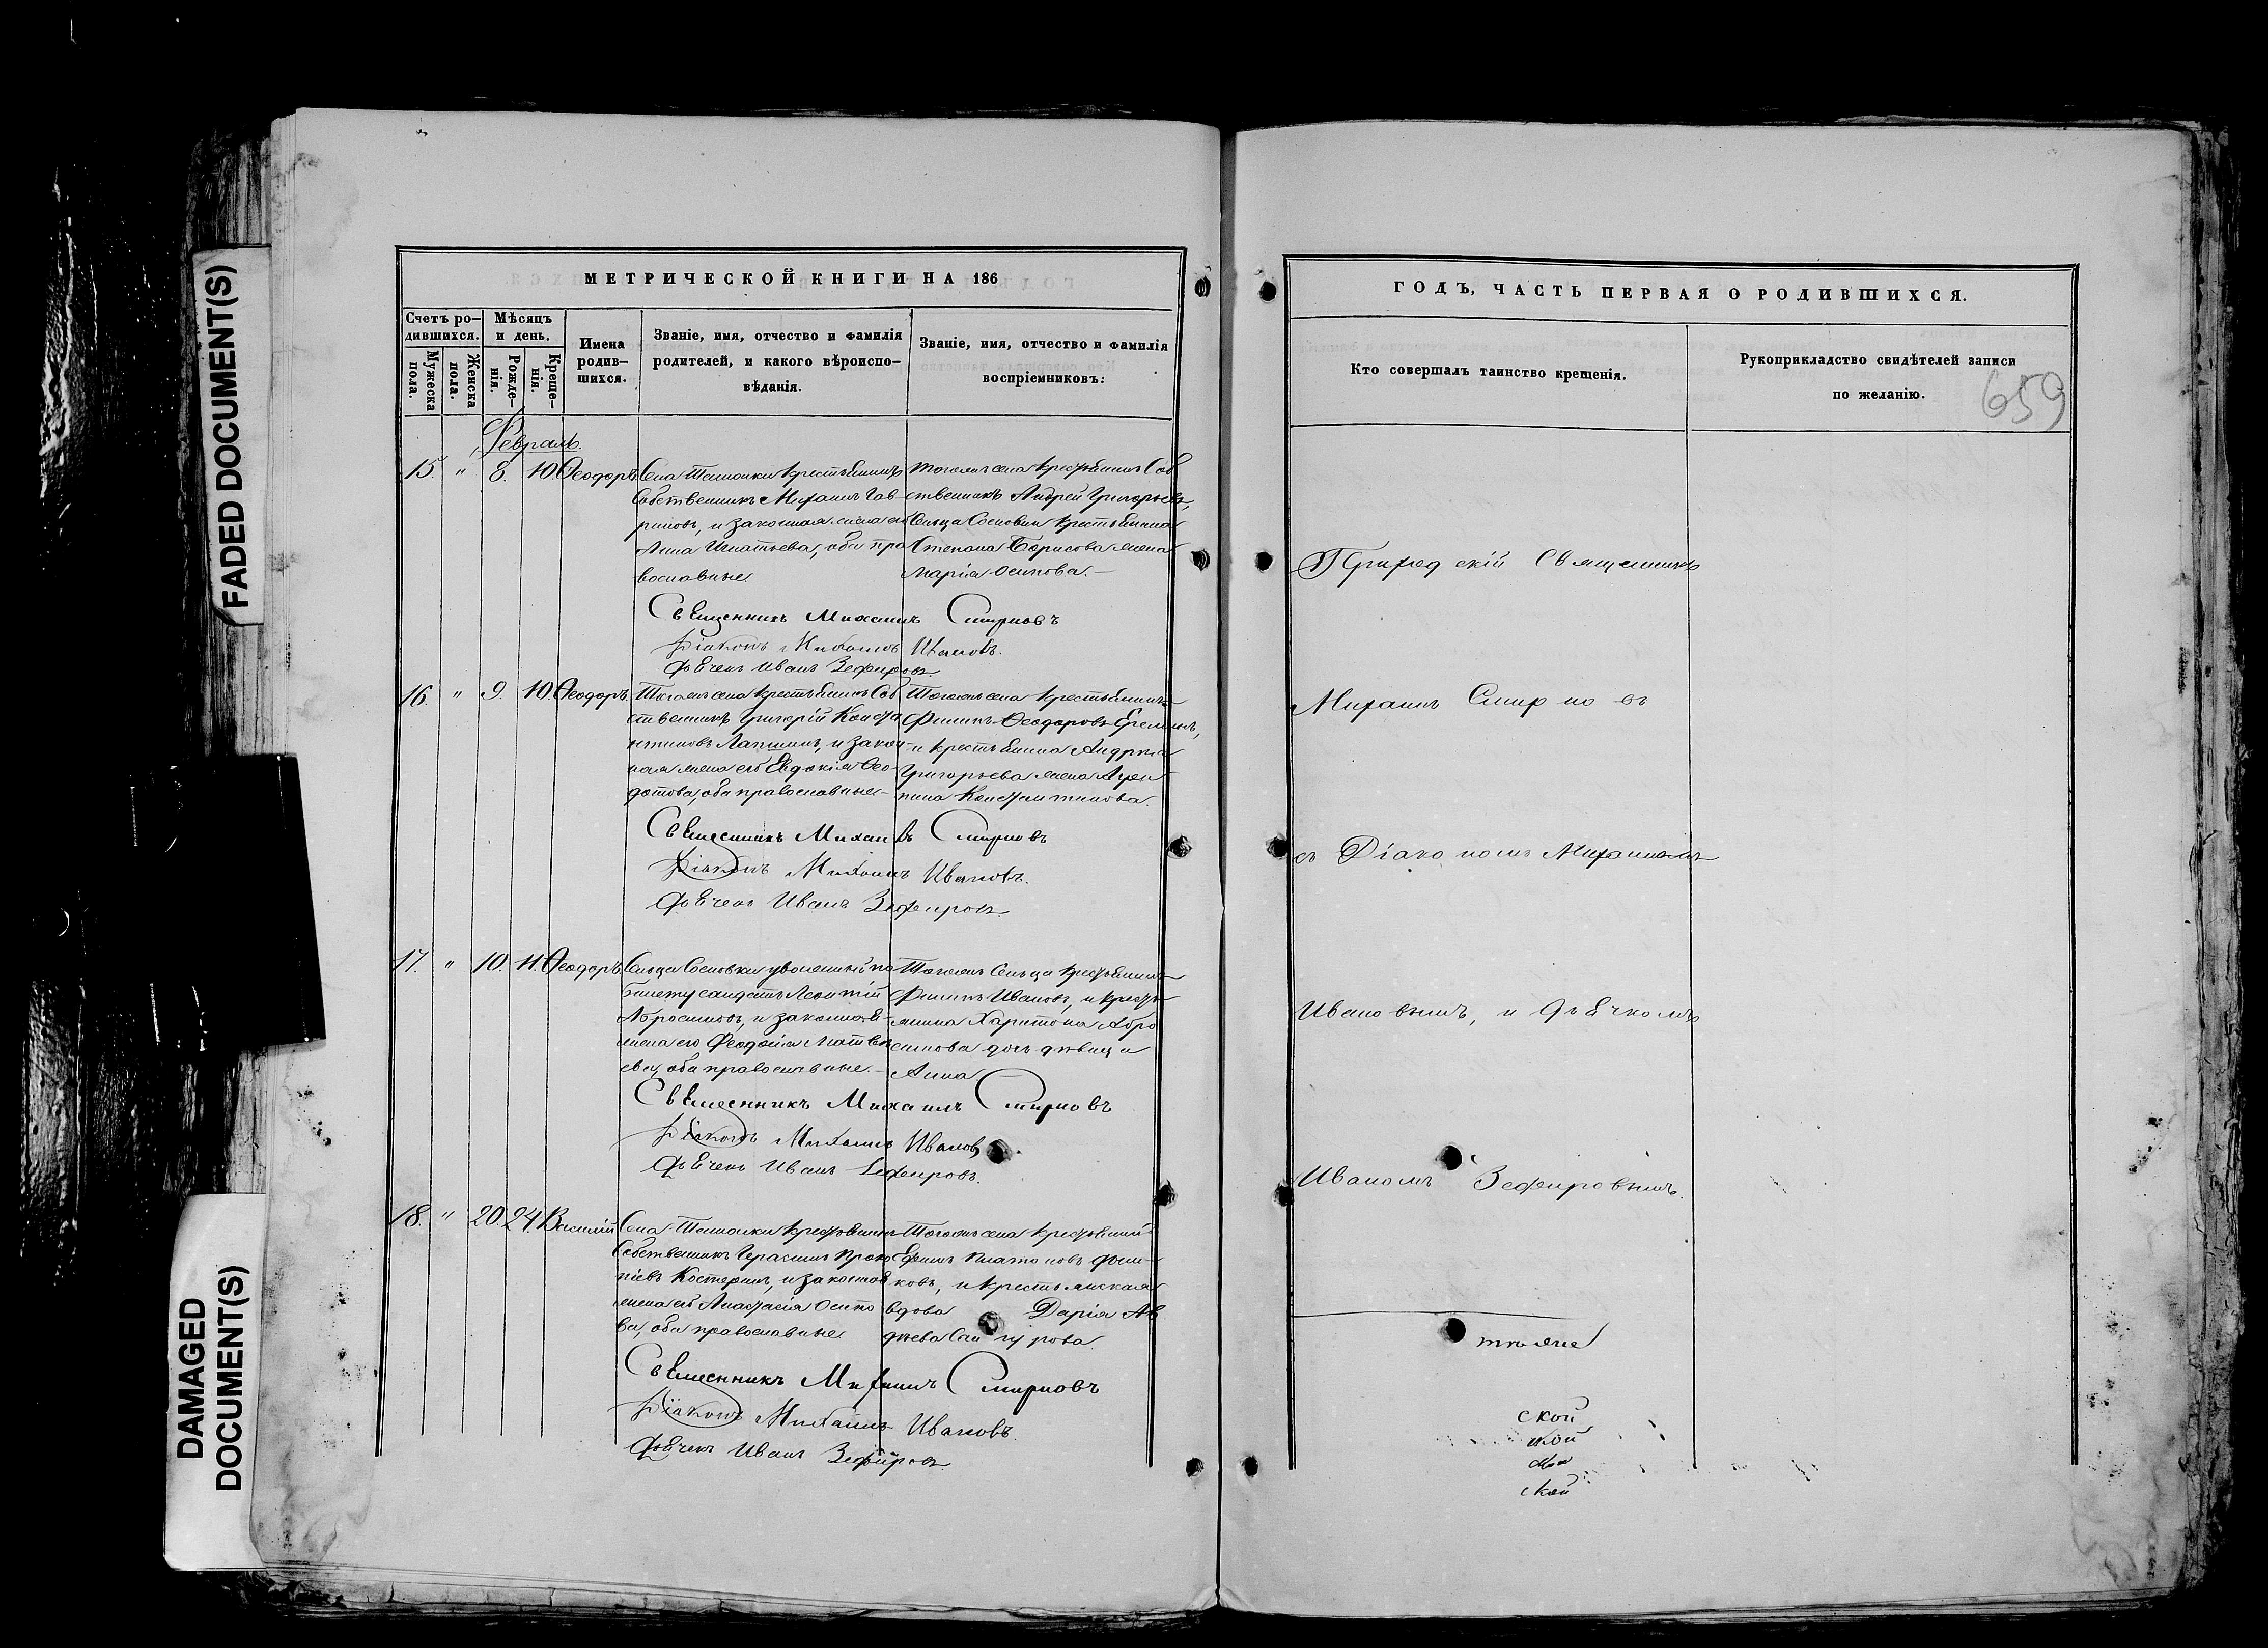 FADED DOCUMENT(S)
DAMAGED
DOCUMENT(S)
МЕТРИЧЕСКОЙ КНИГИ НА 186
Счетъ ро-
дившихся.
Мужеска
пола.
Женска
пола.
Мѣсяцъ
и день.
Рожде-
нія.
Креще-
нія.
Имена
родив-
шихся.
Званіе, имя, отчество и фамилія
родителей, и какого вѣроиспо-
вѣданія.
Званіе, имя, отчество и фамилія
воспріемниковъ:
Февраль.
15. " 8. 10. Ѳеодоръ
Села крестьянинъ
Собственникъ Михаилъ Гав-
риловъ, и законная жена его
Анна Игнатьева, оба пра
вославные
тогожъ села крестьянинъ Соб
ственникъ Андрей Григорьевъ,
Сельца Сосновки крестьянина
Степана Борисова жена
Марія Осипова.-
Священникъ Михаилъ Смирновъ
Діаконъ Михаилъ Ивановъ.
Дьячекъ Иванъ Зефировъ.
16. " 9. 10. Ѳеодоръ.
Тогожъ села крестьянинъ Соб
ственникъ Григорій Конста
нтиновъ Лапшинъ, и закон-
ная жена его Евдокія Ѳео-
дотова, оба православные-
Тогожъ села крестьянинъ
Филипъ Ѳеодоровъ Ереминъ,
и крестьянина Андрея
Григорьева жена Агри-
пина Константинова.
Священникъ Михаилъ Смирновъ
Діаконъ Михаилъ Ивановъ.
Дьячекъ Иванъ Зефировъ.
17. " 10. 11. Ѳеодоръ
Сельца Сосновки уволенный по
билету солдатъ Леонтій
Абросимовъ, и законная
жена его Ѳеодосія Матвѣ
ева, оба православные.-
Тогожъ Сельца крестьянинъ
Филипъ Ивановъ, и кресть
янина Харитона Абро
симова дочь дѣвица
Анна
Священникъ Михаилъ Смирновъ
Діаконъ Михаилъ Ивановъ
Дьячекъ Иванъ Зефировъ.
18. " 20. 24. Василій
Села крестьянинъ
Собственникъ Герасимъ Проко
піевъ Костеринъ, и законная
жена его Анастасія Осипо
ва, оба православные
Тогожъ села крестьянинъ
Ефимъ Платоновъ
ковъ, и крестьянская
вдова Дарія Ав
дѣева
Священникъ Михаилъ Смирновъ
Діаконъ Михаилъ Ивановъ.
Дьячекъ Иванъ Зефировъ.
ГОДЪ, ЧАСТЬ ПЕРВАЯ О РОДИВШИХСЯ.
Кто совершалъ таинство крещенія.
Рукоприкладство свидѣтелей записи
по желанію.
659
Приходскій Священникъ
Михаилъ Смирновъ
съ Діакономъ Михаиломъ
Ивановымъ, и дьячкомъ
Иваномъ Зефировымъ.
ской
ской